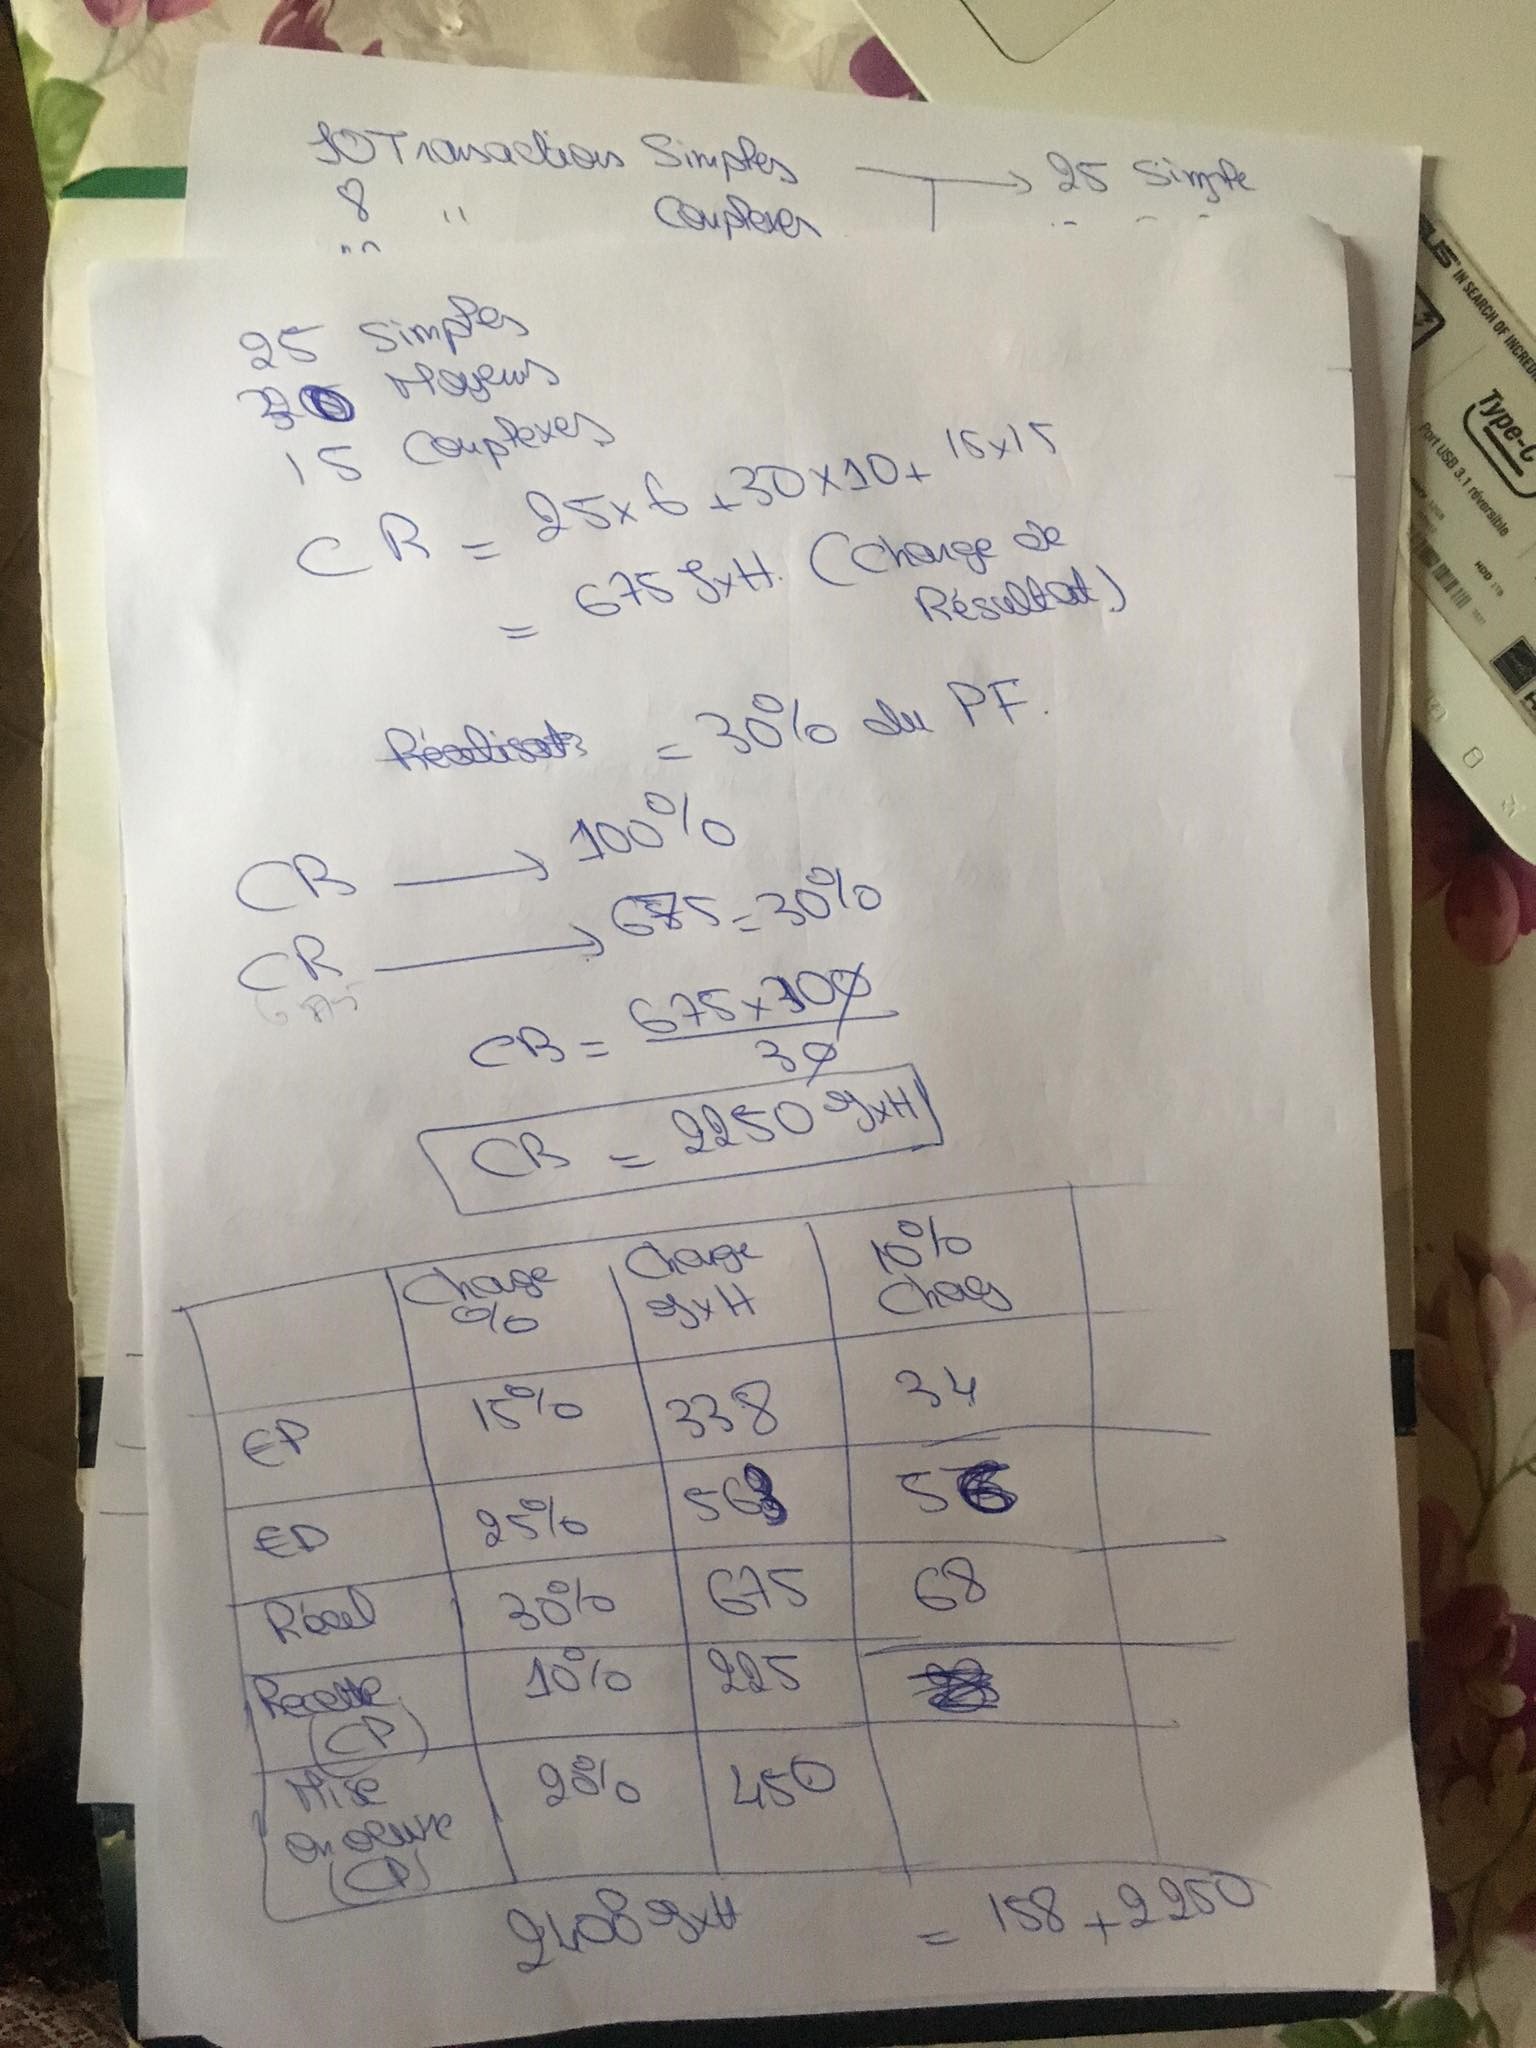 10 Transactions Simples → 25 Simple
8 " Complexes
25 Simples
30 Moyens
15 Complexes
CR = 25x6 + 30x10 + 15x15
= 675 JxH. (Charge de
Résultat)
= 30% du PF.
CB → 100%
CR → 675 = 30%
CB = 675 x 100
30
CB = 2250 JxH
Charge % Charge JxH 10% Charg
EP 15% 338 34
ED 25% 563 56
Réal 30% 675 68
Recette (CP) 10% 225
Mise en œuvre (CP) 20% 450
2408 JxH = 158 + 2250
IN SEARCH OF INCREDI
Type-C
Port USB 3.1 réversible
HDD 1TB